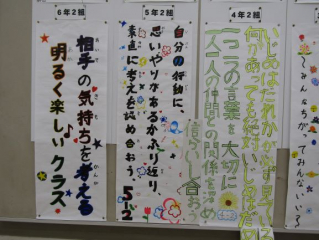 6年2組
相手の気持ちを考える
明るく楽しいクラス
5年2組
自分の行動に
思いやりがあるかふり返り、
素直に考えを認め合おう。5-2
4年2組
いじめはだれかが
何かあっても絶対いじめはだめ
一つ一つの言葉を大切に
一人の仲間との関係を
合おう
4-2
〜みんなちがってみんないい〜